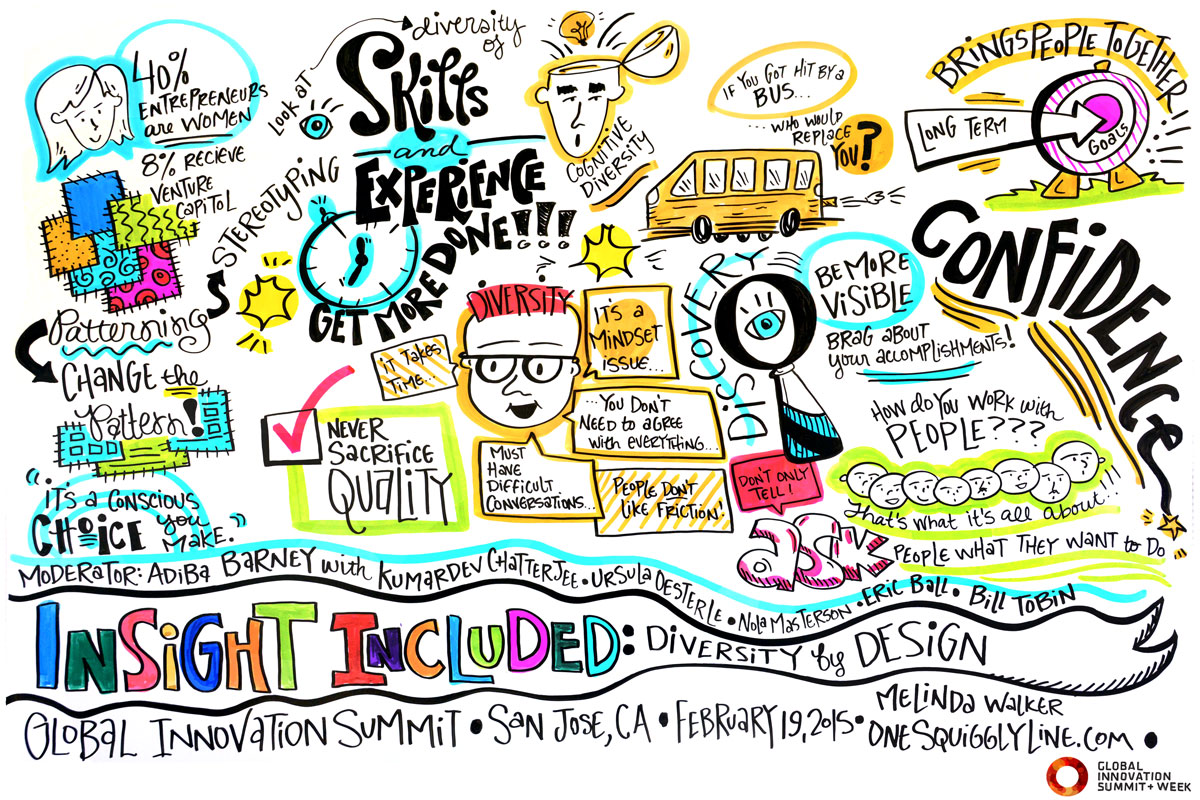 40%
ENTREPRENEURS
are WOMEN
8% RECIEVE
VENTURE
CAPITOL
LOOK at
diversity
of
SKills
and
EXPERIENCE
GET MORE DONE!!!
STEREOTYPING
Patterning
CHANGE the
Pattern!
"IT'S A CONSCIOUS
CHOICE you
MAKE."
COGNITIVE
DIVERSITY
IF YOU GOT HIT BY A
BUS...
...WHO WOULD
REPLACE
YOU?
BRINGS PEOPLE TOGETHER!
LONG TERM
GOALS
CONFiDENCE
DIVERSITY
IT TAKES
TIME...
IT'S A
MINDSET
ISSUE...
...YOU DON'T
NEED to AGREE
with EVERYTHING...
MUST
HAVE
DIFFICULT
CONVERSATIONS...
PEOPLE DON'T
LIKE FRICTION!
NEVER
SACRIFICE
QUALITY
DISCOVERY
BE MORE
ViSIBLE
BRAG ABOUT
your ACCOMPLISHMENTS!
HOW do YOU WORK with
PEOPLE???
That's what it's all about...!!!
DON'T ONLY
TELL!
aSK
PEOPLE WHAT THEY WANT to DO
MODERATOR: ADIBA BARNEY with KUMARDEV CHATTERJEE • URSULA OESTERLE • NOLA MASTERSON • ERIC BALL • BILL TOBIN
INSiGHT INCLUDED: DIVERSITY by DESIGN
GLOBAL INNOVATION SUMMIT • SAN JOSE, CA • FEBRUARY 19, 2015 •
MELINDA WALKER
ONESQUIGGLYLINE.COM •
GLOBAL
INNOVATION
SUMMIT + WEEK